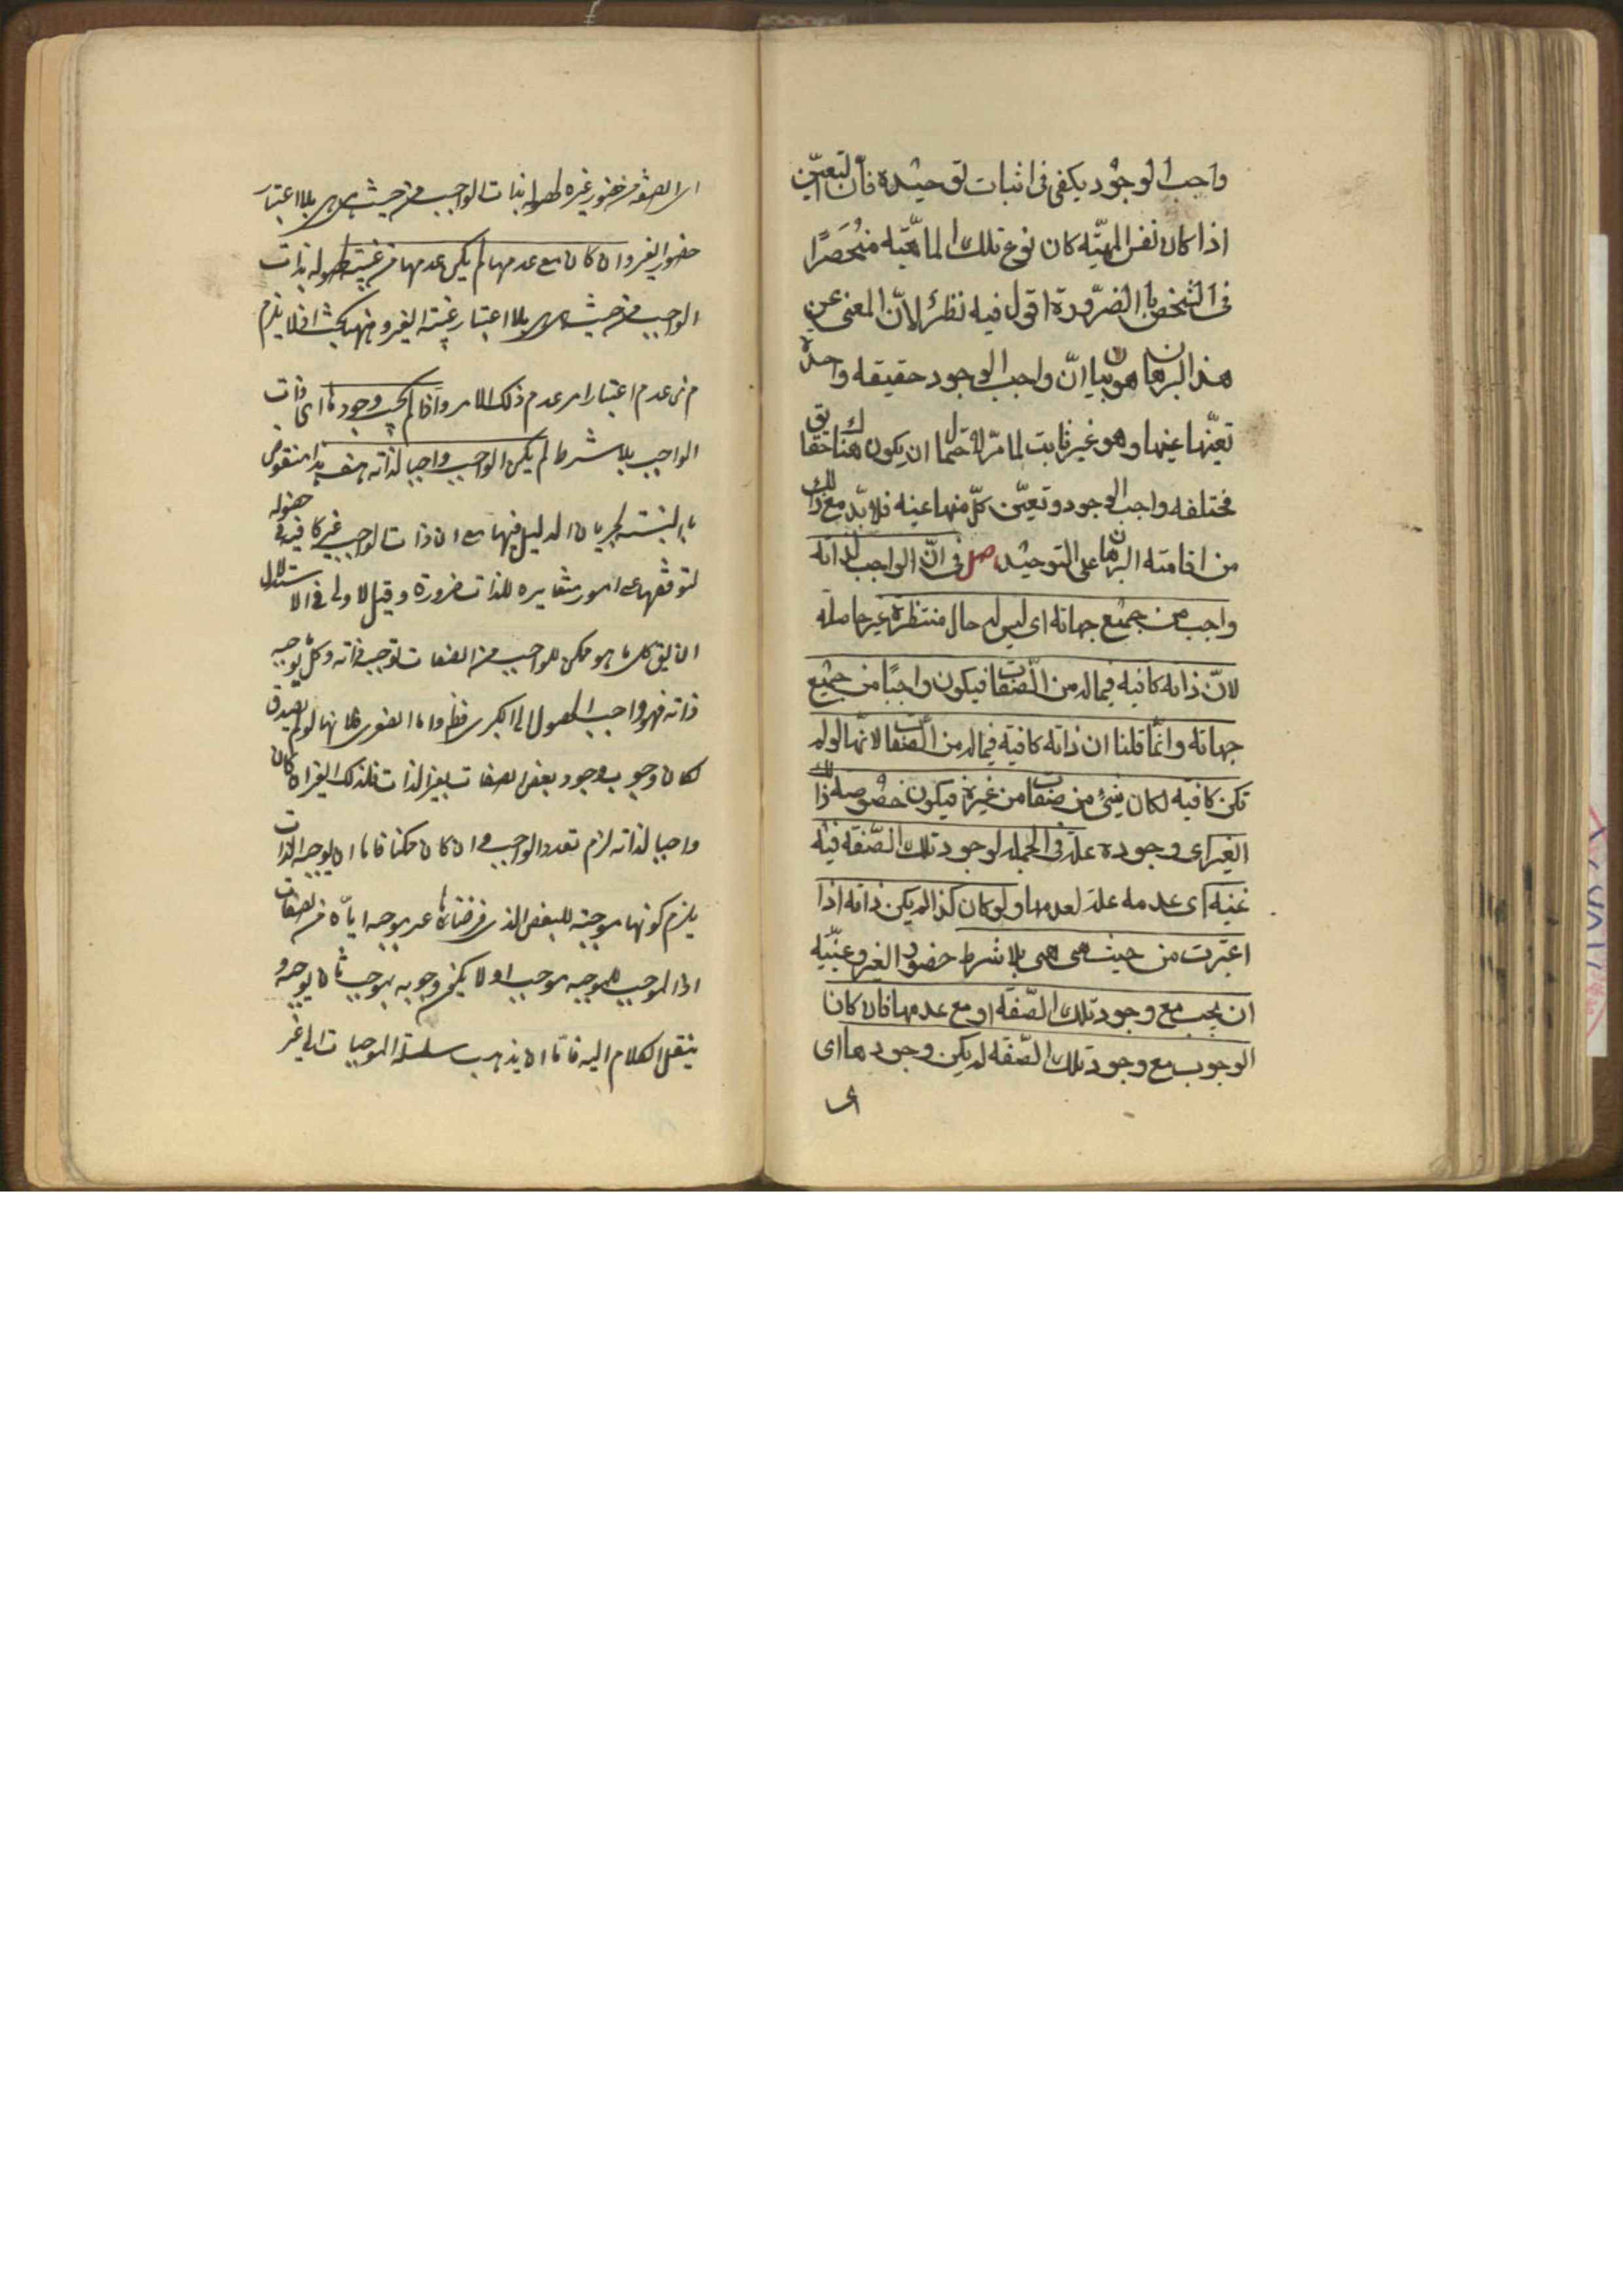 واجب الوجود يكفى فى اثبات توحيده فأن التعيّن
اذا كان نفس المهيّه كان نوع تلك الماهيّه منحصرًا
فى الشخص باالضرّورة اقول فيه نظرٌ لانّ المعنى عن
هذ البرهان هو بيان انّ واجب الوجود حقيقه واحدة
تعيّنها عينها وهو غير ثابت لما مرّ لاحتمال ان يكون هناك حقايق
مختلفه واجب الوجود وتعيّن كلّ منها عينه فلابّد مع ذالك
من اقامته البرهان على التوحيد فصل فى انّ الواجب لذاته
واجب من جميع جهاته اى ليس له حال منتظرة غير حاصلة
لانّ ذاته كافيه فيماله من الّصفات فيكون واجبًا من جميع
جهاته وانّما قلنا ان ذاته كافية فيماله من الّصفات لانّها لولم
تكن كافيه لكان شئ من صفاته من غيره فيكون حضوره ذالك
الغير اى وجوده علة فى الجمله لوجود تلك الصّفة فيه
غيبه اى عدمه علة لعدمها ولو كان كذا لم يكن ذاته اذا
اعتبرت من حيث هى هى بلا شرط حضور الغير وغيبّته
ان يجب مع وجود تلك الصّفة او مع عدمها فان كان
الوجوب مع وجود تلك الصّفة لم يكن وجودها اى
اى الصفة من حضور غيره لحصوله بذات الواجب من حيث هى هى بلا اعتبار
حضور الغير وان كان مع عدمها لم يكن عدمها من غيبته لحصوله بذات
الواجب من حيث هى هى بلا اعتبار غيبته الغير و بحث اذ لا يلزم
من عدم اعتبار امر عدم ذلك الامر واذا لم يجب وجودها اى ذات
الواجب بلا شرط لم يكن الواجب واجبا لذاته هف هذا منقوض
بالنسب لجريان الدليل فيها مع ان ذات الواجب غير كافية فى حصوله
لتوقفها على امور متغايره للذات ضرورة وقيل الاولى فى الاستدلال
ان يق كل ما هو ممكن للواجب من الصفات توجبه ذاته وكل ما يوجبه
ذاته فهو واجب الحصول اما الكبرى فظ واما الصغرى فلانها لو لم تصدق
لكان وجوب وجود بعض الصفات بغير الذات فذلك الغير ان كان
واجبا لذاته لزم تعدد الواجب وان كان ممكنا فاما ان يوجبه الذات
يلزم كونها موجبة للبعض الذى فرضناها غير موجبه اياه من الصفات
اذ الموجب للموجبه موجب اولا يكون وجوبه بموجب ثان يوجبه و
ينقل الكلام اليه فامّا ان يذهب سلسلة الموجبات الى غير